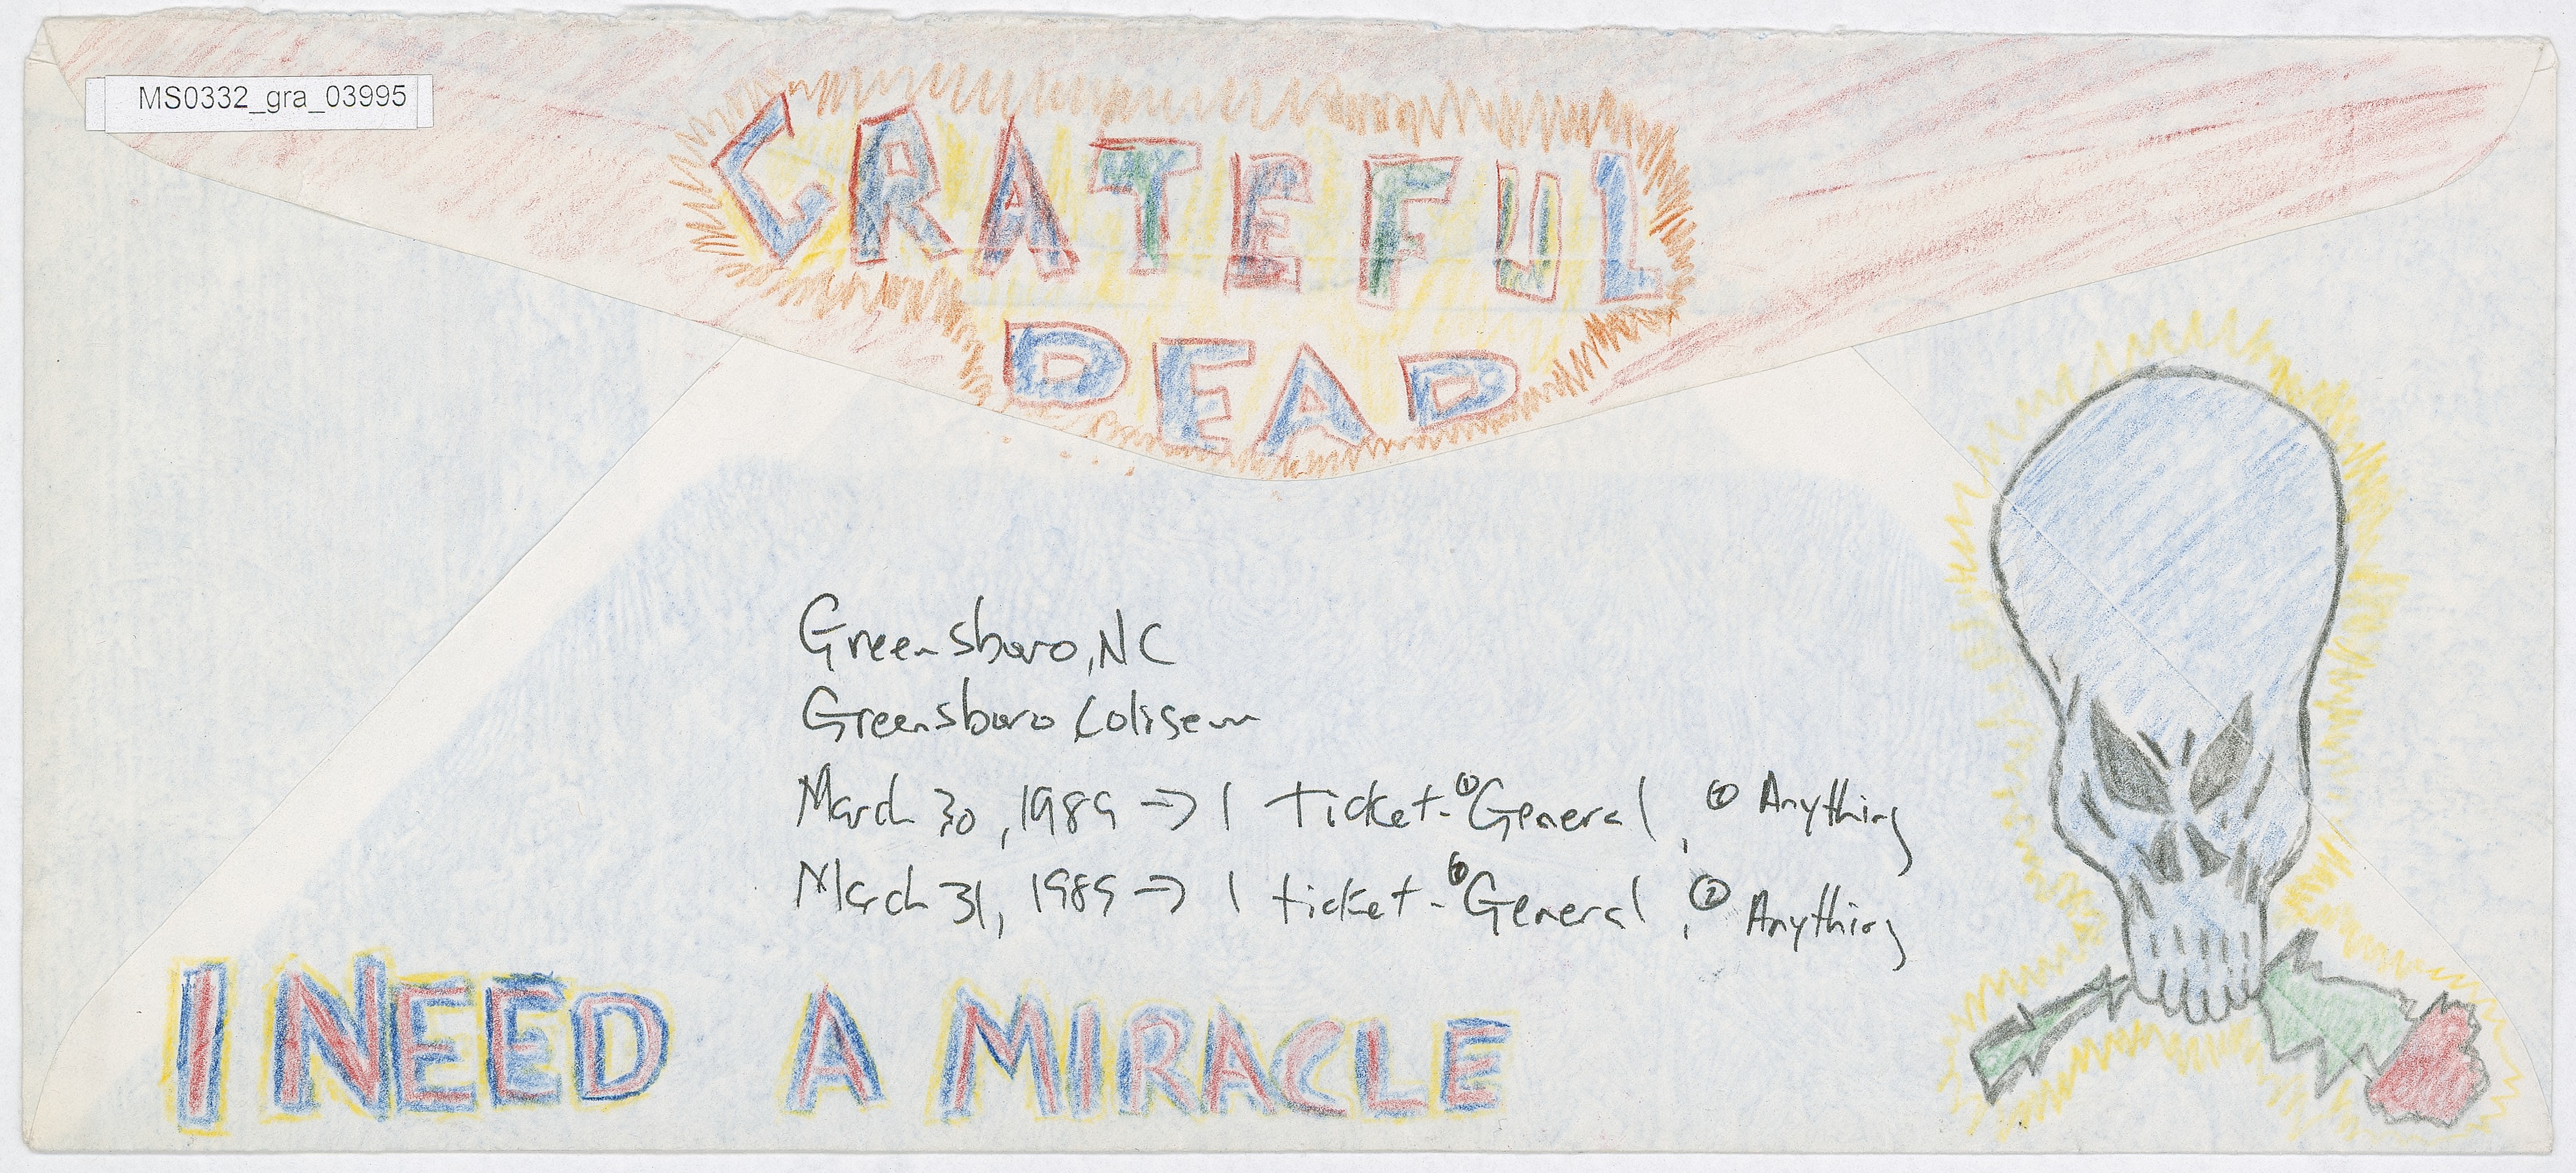 MS0332_gra_03995
GRATEFUL
DEAD
Greensboro, NC
Greensboro Coliseum
March 30, 1989 → 1 ticket - ① General, ② Anything
March 31, 1989 → 1 ticket - ① General, ② Anything
I NEED A MIRACLE